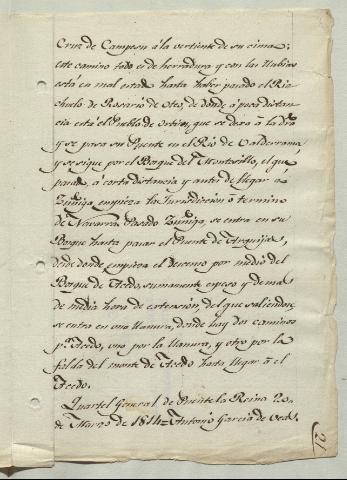 Cruz de Campesu á la vertiente de su cima;
este camino todo es de herradura y con las llubias
está en mal estado hasta haber pasado el Ria
chuelo de Rosario de Oteo, de donde á poca distan
cia está el Pueblo de Orbiso, que se dexa á la dra
y se pasa su Puente en el Rio de Valderrama
y se sigue por el Bosque del Montesillo, el que
pasado, á corta distancia y antes de llegar a
Zuñiga empieza la Jurisdiccion ó termino
de Navarra. Pasado Zuñiga, se entra en su
Bosque hasta pasar el Puente de Arquijas,
desde donde empieza el Descenso por medio del
Bosque de Acedo, sumamente espeso y de mas
de media hora de extension, del que saliendo,
se entra en una llanura, donde hay dos caminos
pa. Acedo, uno por la llanura, y otro por la
falda del monte de Acedo hasta llegar á el
Acedo.
Quartel General de Puente la Reina 20.
de Marzo de 1814 = Antonio Garcia de
21